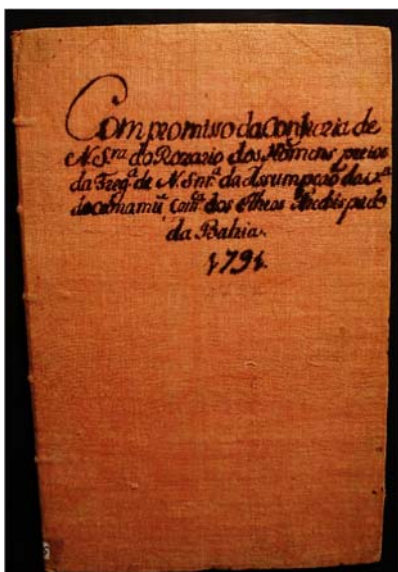 Compromisso da Confraria de
N. Snra. do Rozario dos Homens pretos
da Freg.ª de N. Snr.ª da Assumpção da V.ª
de Camamú, Com.ª dos Ilheos Arcebispado
da Bahia.
1791.